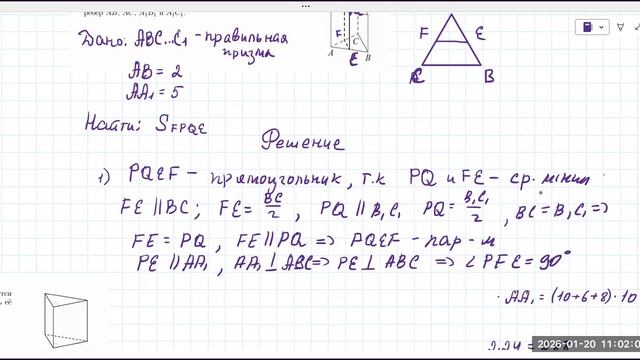 ребер AB, AC, A₁B₁ и A₁C₁.
Дано: ABC...C₁ - правильная
призма
AB = 2
AA₁ = 5
F
A
C
E
B
F
E
B
Найти: S_FPQE
Решение
1) PQEF - прямоугольник, т.к PQ и FE - ср. линии
FE || BC; FE = BC/2, PQ || B₁C₁ PQ = B₁C₁/2, BC = B₁C₁ =>
FE = PQ, FE || PQ => PQEF - пар-м
PE || AA₁, AA₁ ⊥ ABC => PE ⊥ ABC => ∠PFE = 90°
· AA₁ = (10+6+8) · 10
2026-01-20 11:02:0